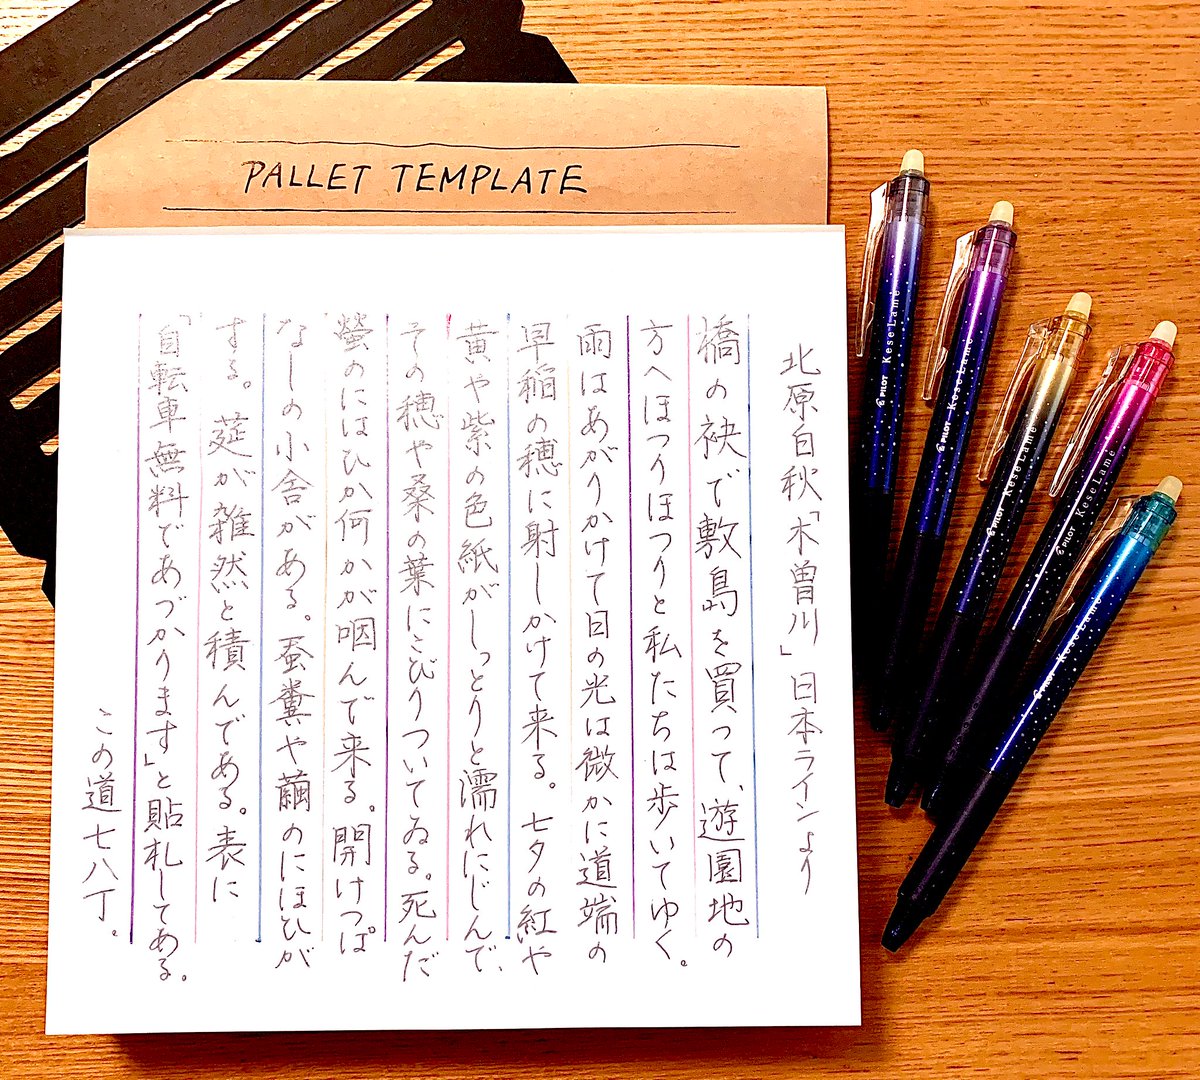 PALLET TEMPLATE
北原白秋「木曽川」日本ラインより
橋の袂で敷島を買って、遊園地の
方へほつりほつりと私たちは歩いてゆく。
雨はあがりかけて日の光は微かに道端の
早稲の穂に射しかけて来る。七夕の紅や
黄や紫の色紙がしっとりと濡れにじんで、
その穂や桑の葉にこびりついてゐる。死んだ
螢のにほひか何かが咽んで来る。開けっぱ
なしの小舎がある。蚕糞や繭のにほひが
する。莚が雑然と積んである。表に
「自転車無料であづかります」と貼札してある。
この道七八丁。
PILOT KeseLame
PILOT KeseLame
PILOT KeseLame
PILOT KeseLame
PILOT KeseLame